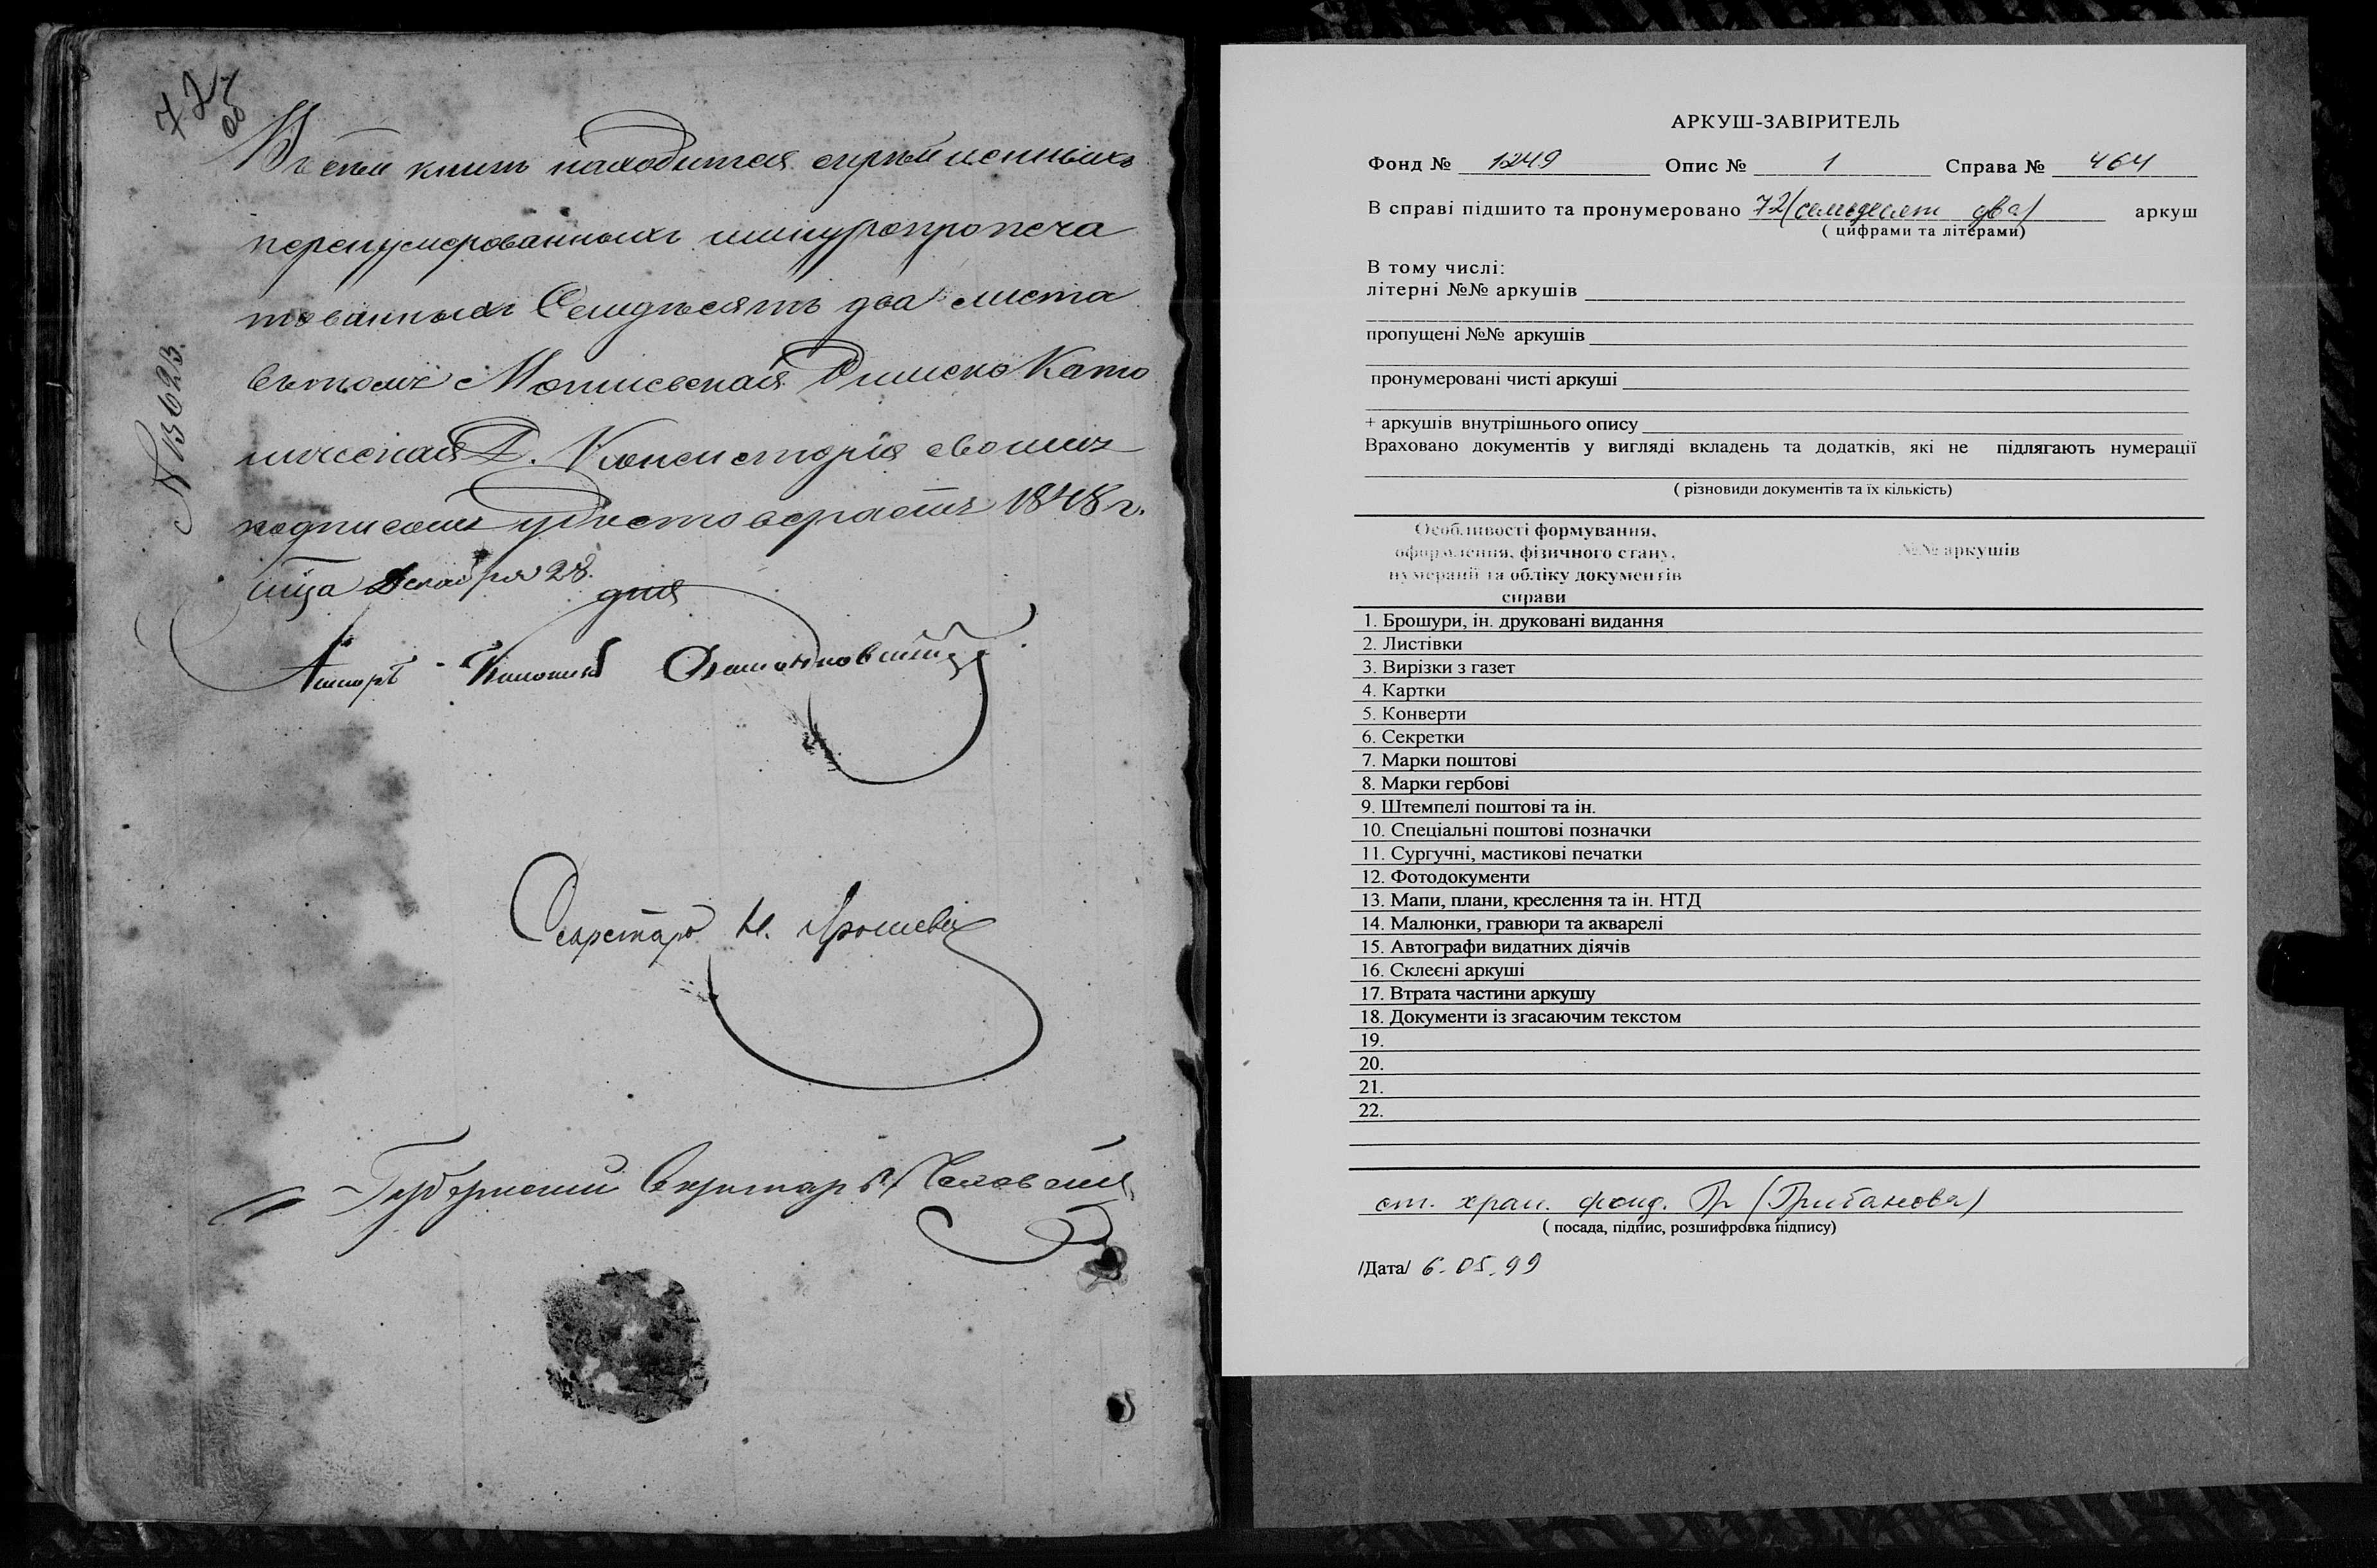 72
об
Въ сей книгѣ находится скрѣпленныхъ
перенумерованныхъ шнуропропеча
тованныхъ Семдѣсятъ два листа
въ томъ Могилевская Римско Като
лическая Д. Консисторія своимъ
подписомъ удостовѣраетъ 1848 г.
мца Декабря 28.
дня
Ассесоръ Каноникъ
Секретарь И.
Губернский Секретарь
№ 13623.
АРКУШ-ЗАВІРИТЕЛЬ
Фонд № 1249 Опис № 1 Справа № 464
В справі підшито та пронумеровано 72 (семьдесят два) аркуш
( цифрами та літерами)
В тому числі:
літерні №№ аркушів
пропущені №№ аркушів
пронумеровані чисті аркуші
+ аркушів внутрішнього опису
Враховано документів у вигляді вкладень та додатків, які не підлягають нумерації
( різновиди документів та їх кількість)
Особливості формування,
оформлення, фізичного стану,
нумерації та обліку документів
справи
№№ аркушів
1. Брошури, ін. друковані видання
2. Листівки
3. Вирізки з газет
4. Картки
5. Конверти
6. Секретки
7. Марки поштові
8. Марки гербові
9. Штемпелі поштові та ін.
10. Спеціальні поштові позначки
11. Сургучні, мастикові печатки
12. Фотодокументи
13. Мапи, плани, креслення та ін. НТД
14. Малюнки, гравюри та акварелі
15. Автографи видатних діячів
16. Склеєні аркуші
17. Втрата частини аркушу
18. Документи із згасаючим текстом
19.
20.
21.
22.
ст. хран. фонд. Гр (Грибанова)
( посада, підпис, розшифровка підпису)
/Дата/ 6.05.99